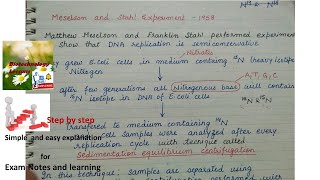 N14 & N15
Meselson and Stahl Experiment - 1958
Matthew Meselson and Franklin Stahl performed experiment
show that DNA replication is semiconservative
Nitrates
grew E.coli cells in medium containing 15N (heavy isotope
Nitrogen
A,T,G,C
after few generations all Nitrogenous base will contain
15N isotope in DNA of E.coli cells
14N & 15N
transferred to medium containing 14N
cell samples were analyzed after every
replication cycle with technique called
Sedimentation equilibrium centrifugation
In this technique, samples are separated using
performed with
Biotechnology
Step by step
Simple and easy explanation
for
Exam Notes and learning